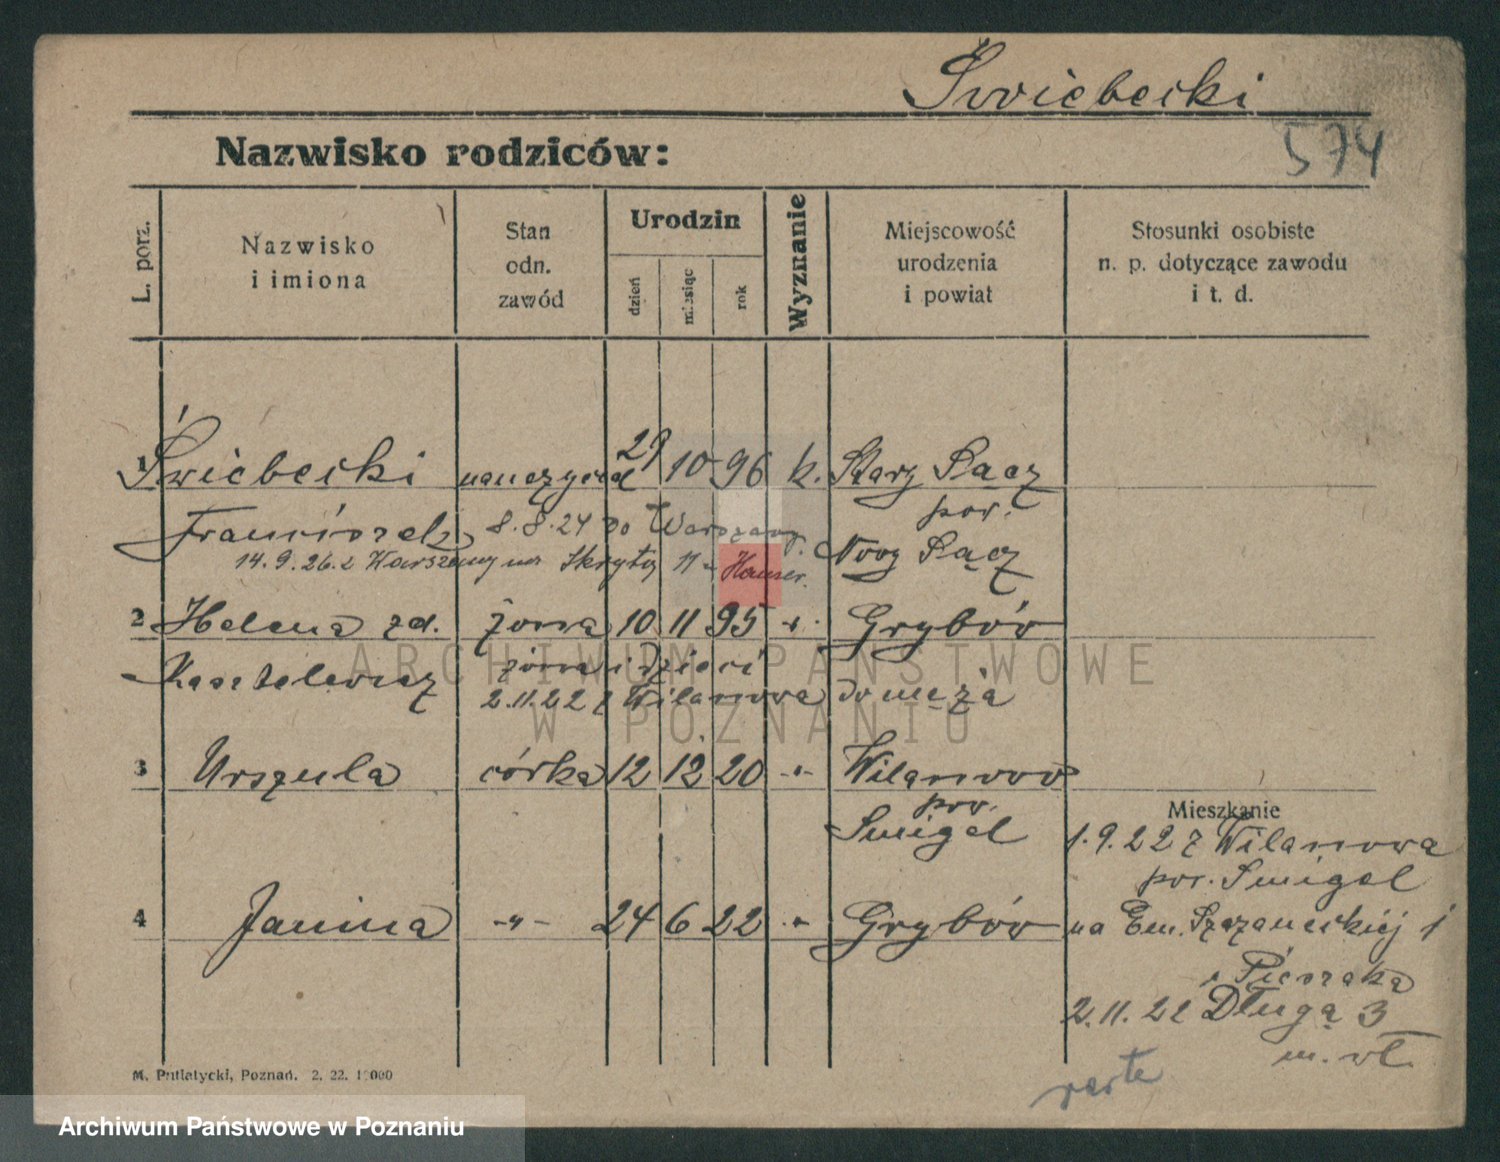 Świebecki
574
Nazwisko rodziców:
L. porz.
Nazwisko
i imiona
Stan
odn.
zawód
Urodzin
dzień
miesiąc
rok
Wyznanie
Miejscowość
urodzenia
i powiat
Stosunki osobiste
n. p. dotyczące zawodu
i t. d.
1 Świebecki nauczyciel 29 10 96 k. Stary Sącz
Franciszek 8.8.24 do Warszawy pow.
14.9.26 z Warszawy na Skrytą 11 Nowy Sącz
2 Helena zd. żona 10 11 95 -"- Grybów
żona i dzieci
2.11.22 z Wilanowa do męża
3 Urszula córka 12 12 20 -"- Wilanowo
pow.
Śmigel
Mieszkanie
1.9.22 z Wilanowa
pow. Śmigel
4 Janina -"- 24 6 22 " Grybów na Em. Szczaneckiej 1
2.11.22 Długą 3
m. wł.
M. Putiatycki, Poznań. 2. 22. 1000
ARCHIWUM PAŃSTWOWE
W POZNANIU
Archiwum Państwowe w Poznaniu